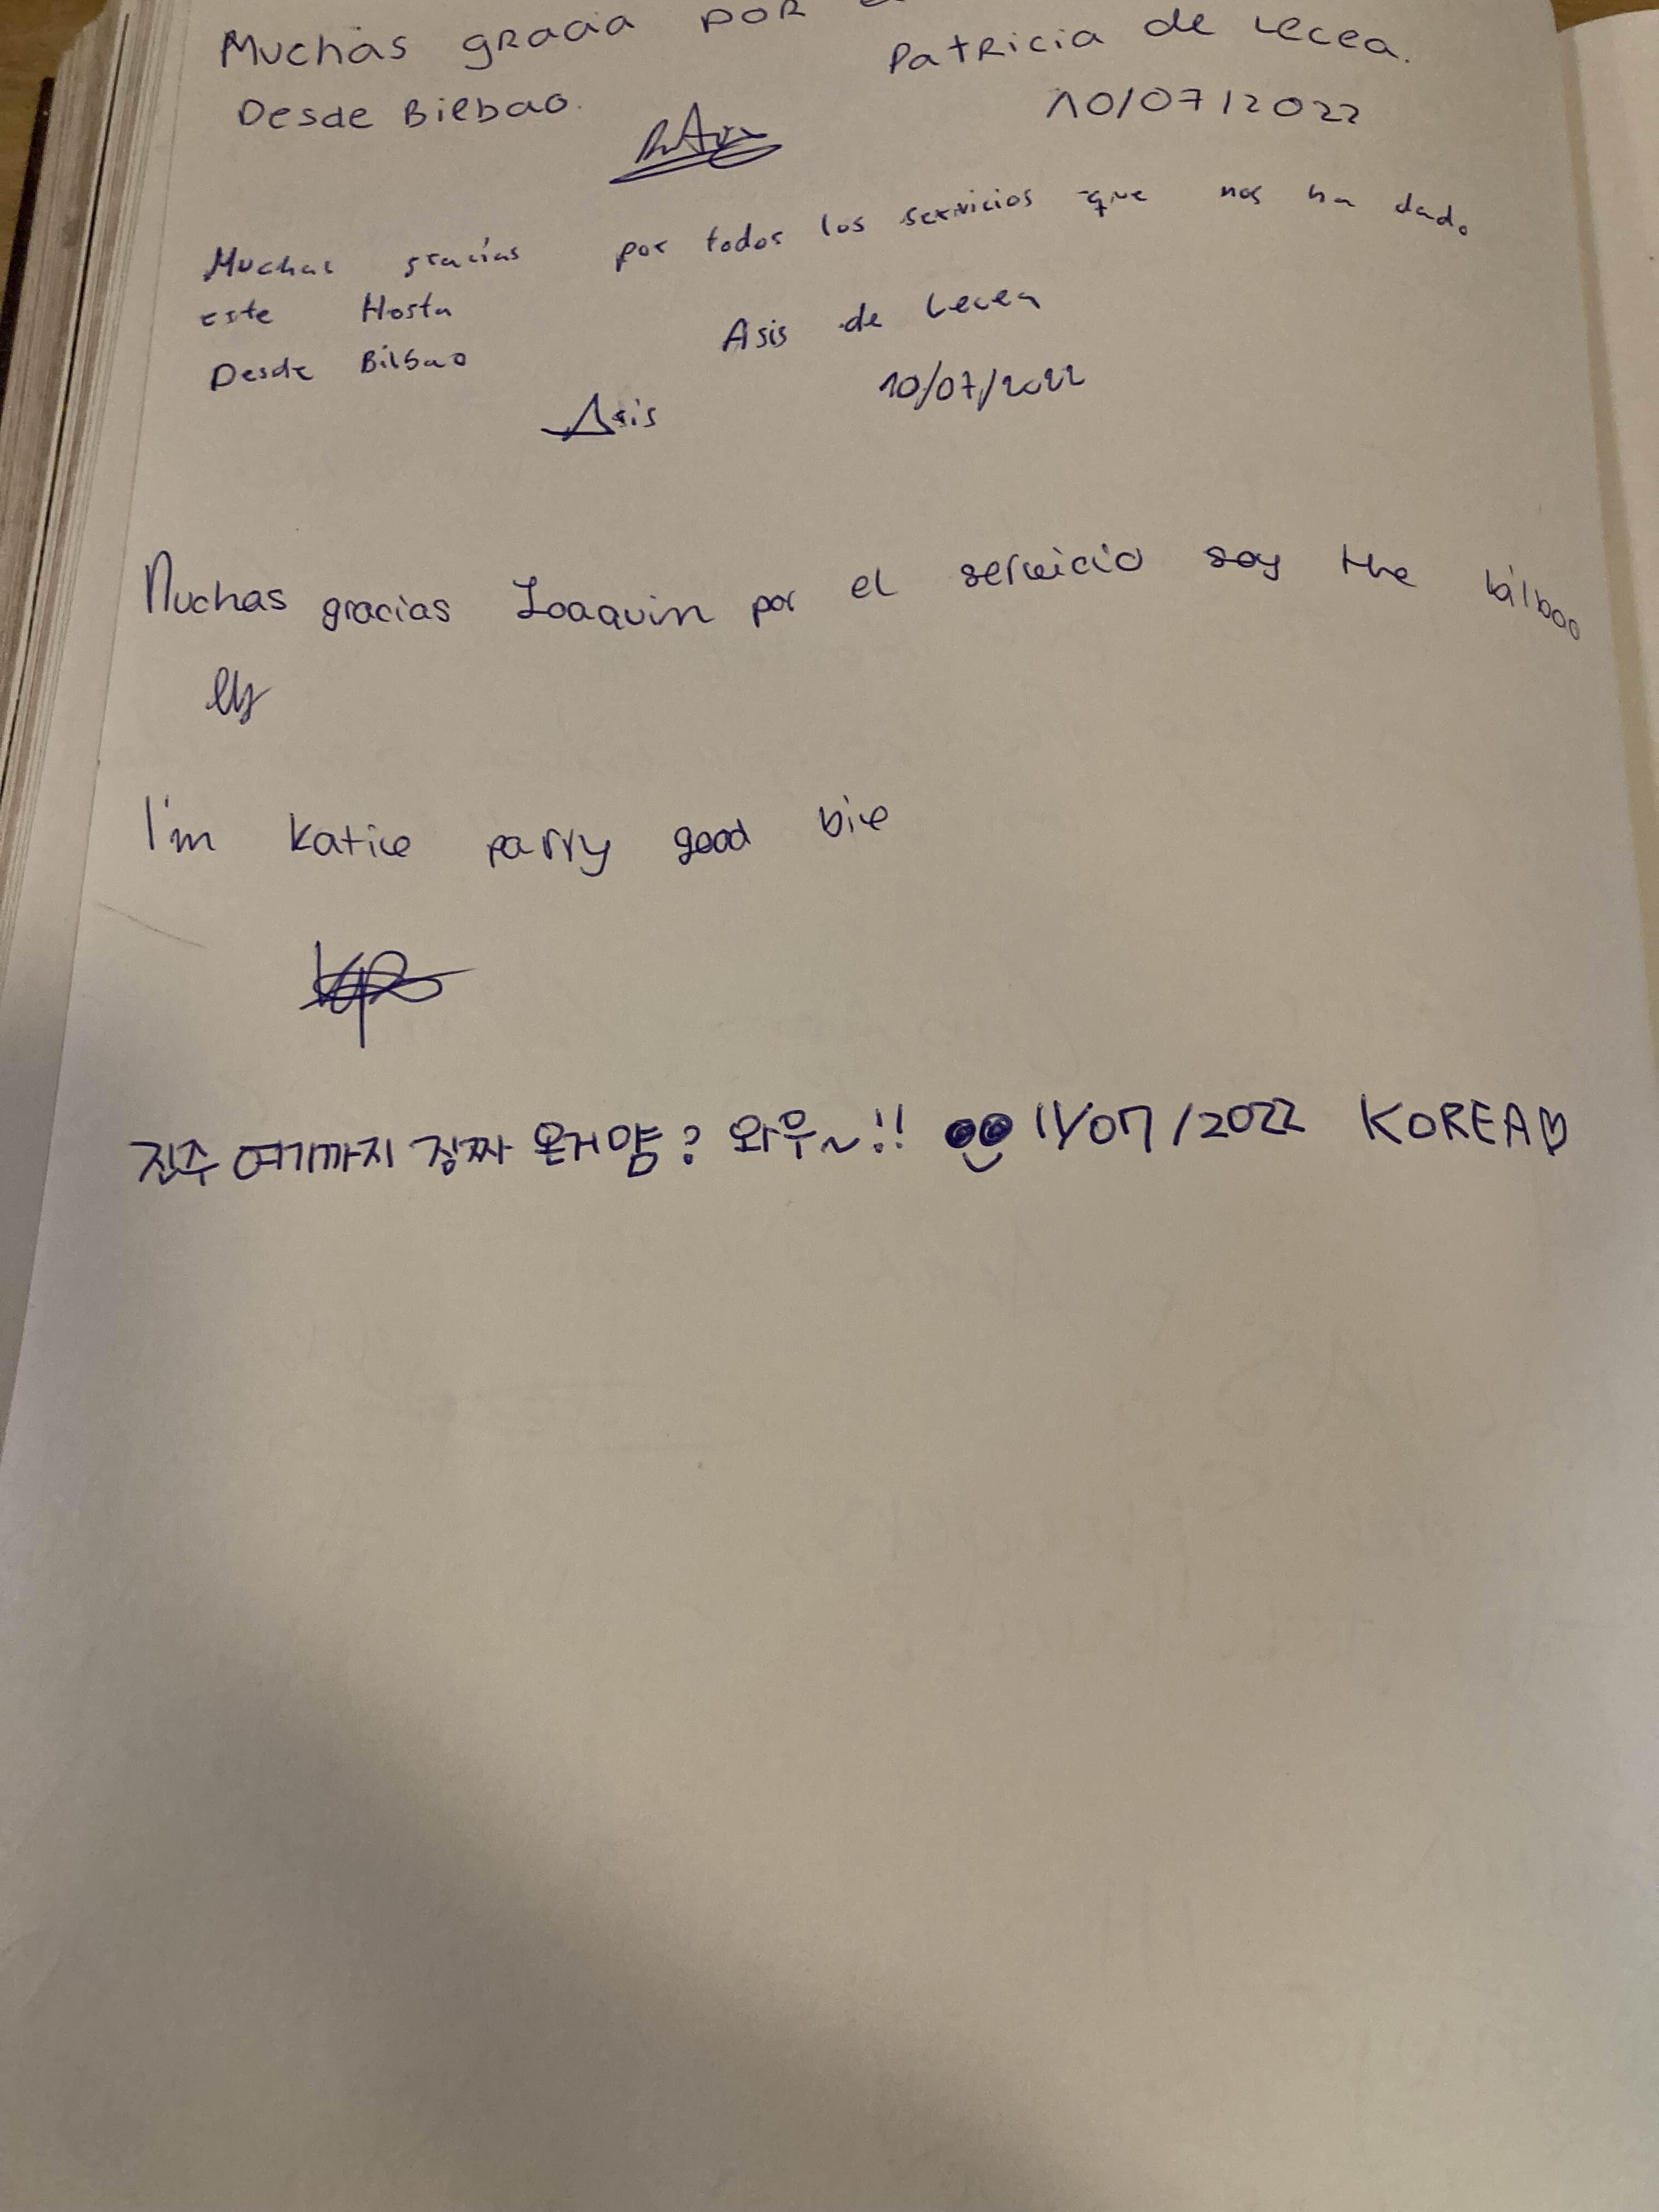 Muchas gracia por
Patricia de Lecea.
Desde Bilbao.
10/07/2022
Muchas gracias por todos los servicios que nos ha dado
este Hosta
Desde Bilbao
Asis de Lecea
10/07/2022
Asis
Muchas gracias Joaquin por el servicio soy the bilbao
I'm Katice parry good bie
진주 여기까지 징짜 온거얌? 와우~!! 11/07/2022 KOREA♡